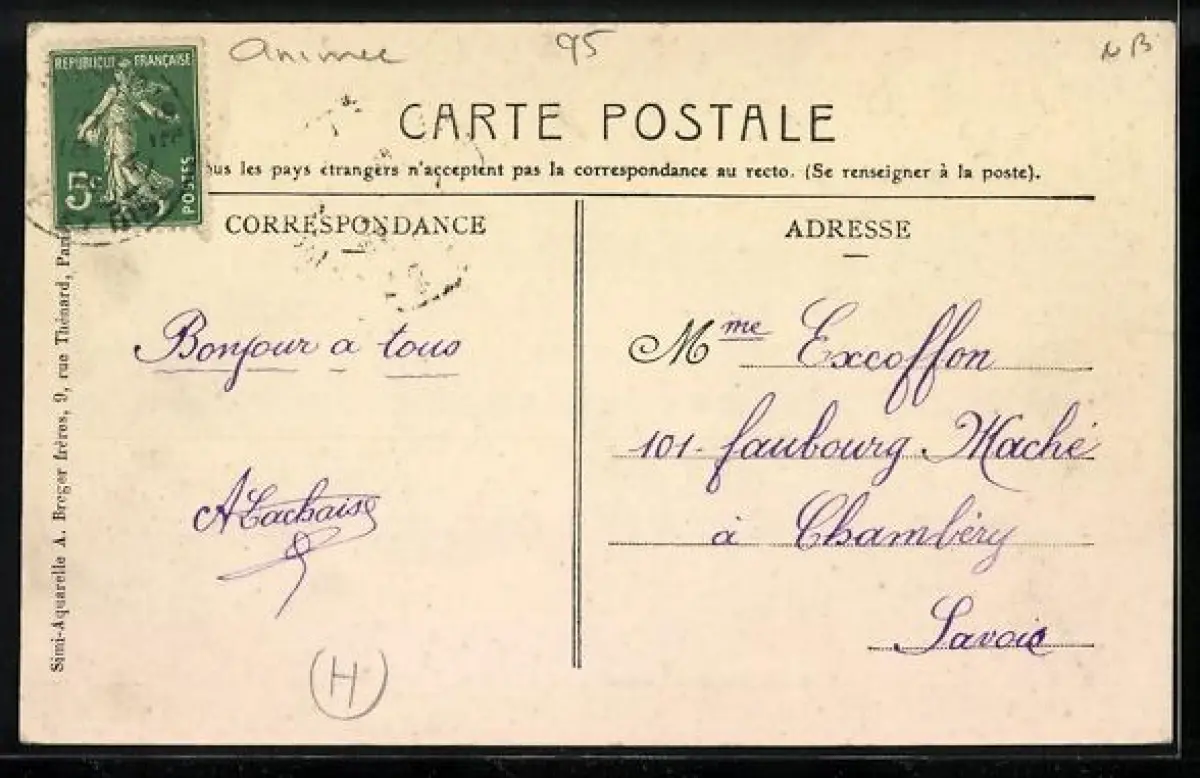 Animee 95 NB
REPUBLIQUE FRANÇAISE
5c POSTES
CARTE POSTALE
ous les pays étrangers n'acceptent pas la correspondance au recto. (Se renseigner à la poste).
CORRESPONDANCE
Bonjour a tous
ALachaise
H
ADRESSE
Mme Excoffon
101. faubourg Maché
à Chambéry
Savoie
Simi-Aquarelle A. Breger frères, 9, rue Thénard, Pari